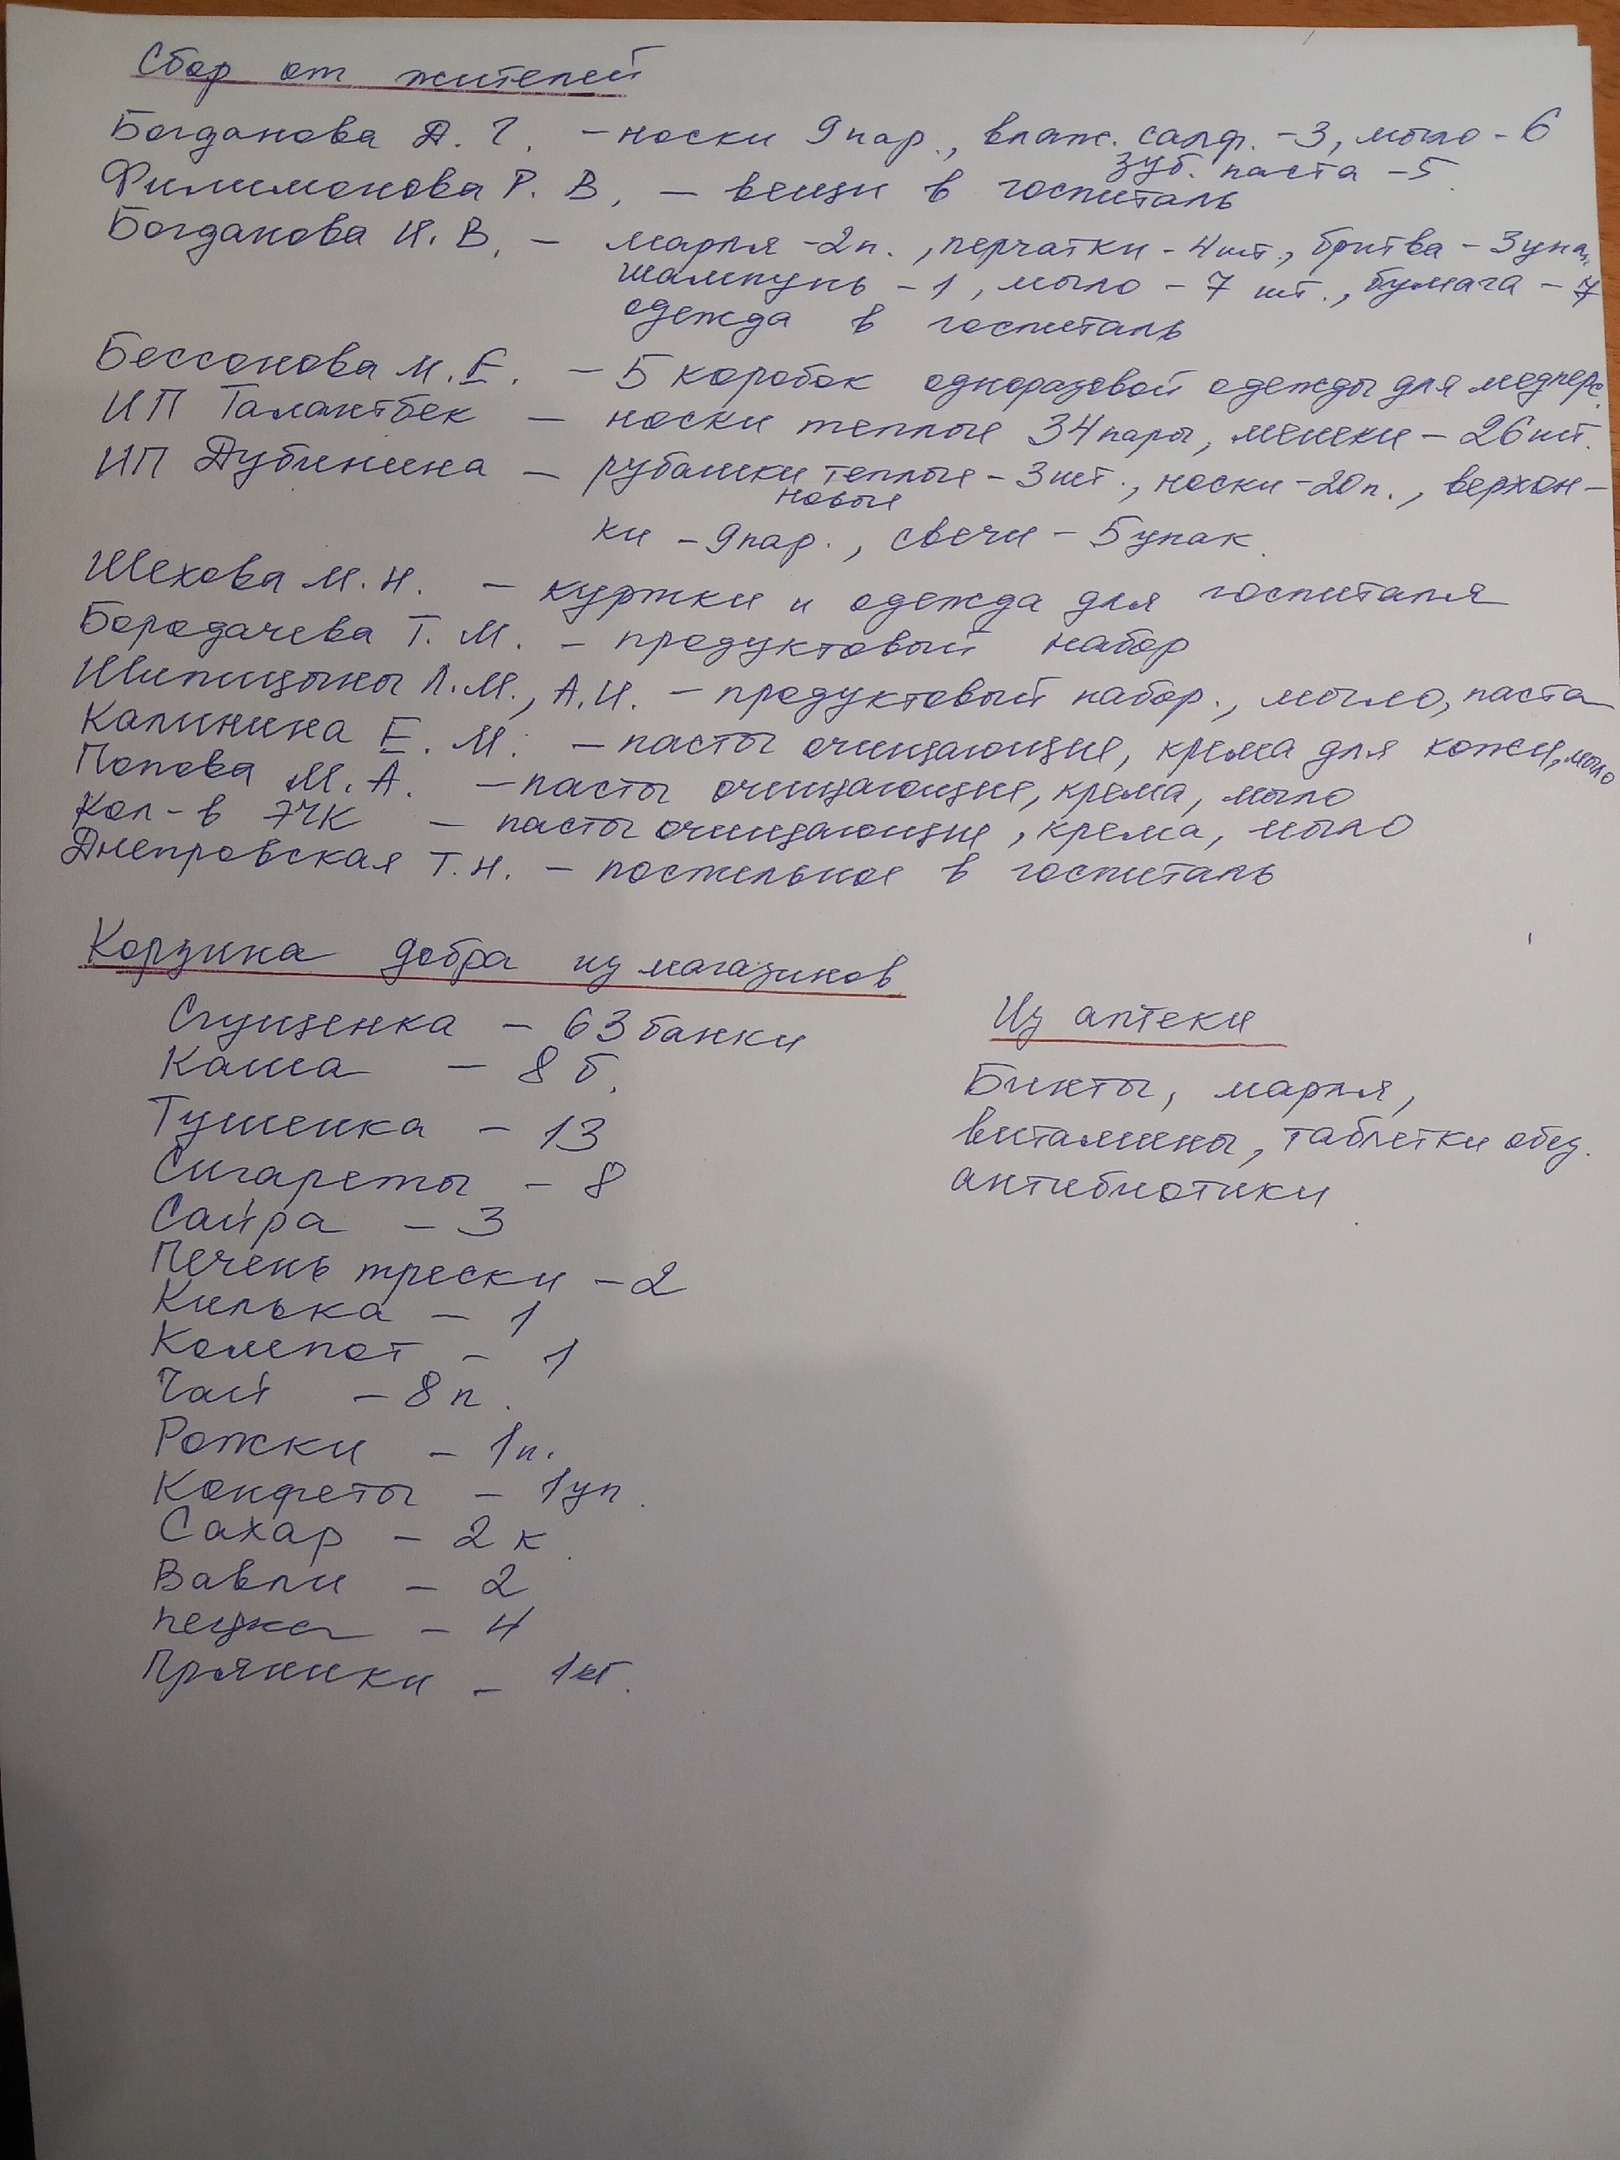 Сбор от жителей
Богданова А. Г. – носки 9 пар., влаж. салф. – 3, мыло – 6
зуб. паста – 5
Филимонова Р. В. – вещи в госпиталь
Богданова И. В. – марля – 2 п., перчатки – 4 шт., бритва – 3 упак.
шампунь – 1, мыло – 7 шт., бумага – 7
одежда в госпиталь
Бессонова М. Е. – 5 коробок одноразовой одежды для медперс.
ИП Талантбек – носки теплые 34 пары, мешки – 26 шт.
ИП Дубинина – рубашки теплые – 3 шт., носки – 20 п., верхон–
новые
ки – 9 пар., свечи – 5 упак.
Шехова М. Н. – куртки и одежда для госпиталя
Бородачева Т. М. – продуктовый набор
Шипицыны Л. М., А. И. – продуктовый набор., мыло, паста
Калинина Е. М. – пасты очищающие, крема для кожи, мыло
Попова М. А. – пасты очищающие, крема, мыло
Кол-в ЭЧК – пасты очищающие, крема, мыло
Днепровская Т. Н. – постельное в госпиталь
Корзина добра из магазинов
Сгущенка – 63 банки
Каша – 8 б.
Тушенка – 13
Сигареты – 8
Сайра – 3
Печень трески – 2
Килька – 1
Компот – 1
Чай – 8 п.
Рожки – 1 п.
Конфеты – 1 уп.
Сахар – 2 к.
Вавли – 2
– 4
Пряники – 1 кг.
Из аптеки
Бинты, марля,
витамины, таблетки обез.
антибиотики